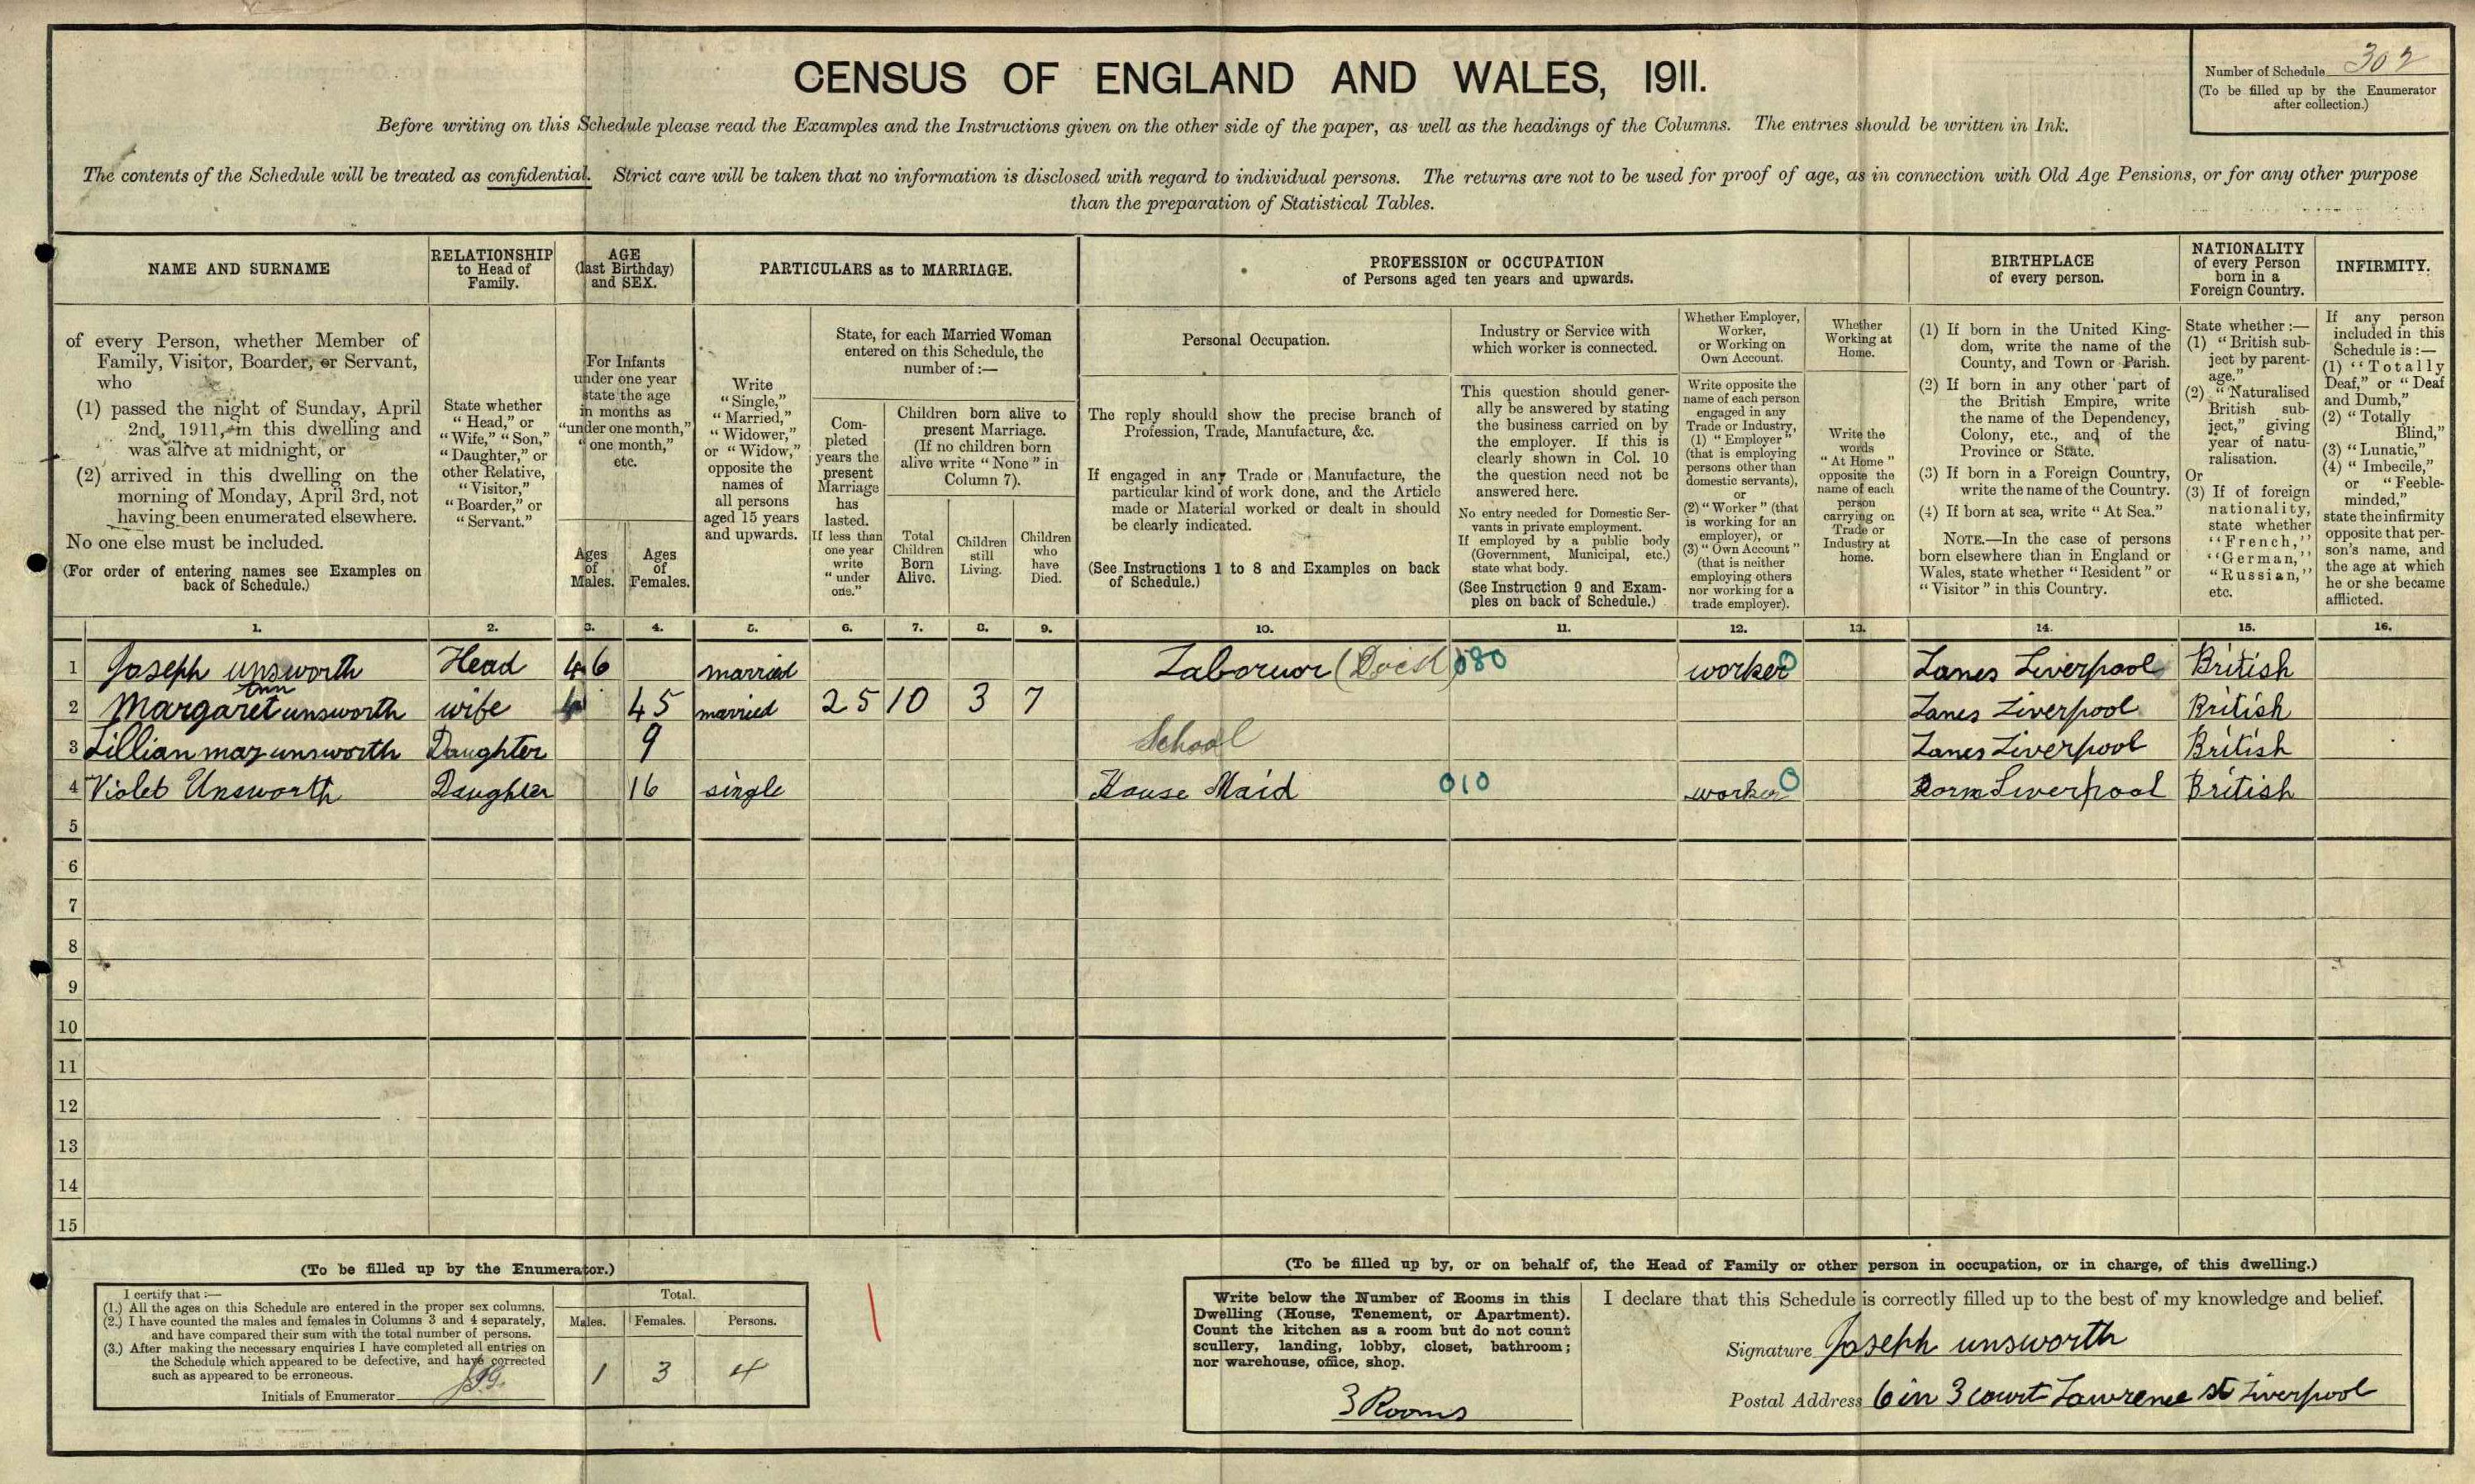 CENSUS OF ENGLAND AND WALES, 1911.
Number of Schedule 302
(To be filled up by the Enumerator
after collection.)
Before writing on this Schedule please read the Examples and the Instructions given on the other side of the paper, as well as the headings of the Columns. The entries should be written in Ink.
The contents of the Schedule will be treated as confidential. Strict care will be taken that no information is disclosed with regard to individual persons. The returns are not to be used for proof of age, as in connection with Old Age Pensions, or for any other purpose
than the preparation of Statistical Tables.
NAME AND SURNAME
of every Person, whether Member of
Family, Visitor, Boarder, or Servant,
who
(1) passed the night of Sunday, April
2nd, 1911, in this dwelling and
was alive at midnight, or
(2) arrived in this dwelling on the
morning of Monday, April 3rd, not
having been enumerated elsewhere.
No one else must be included.
(For order of entering names see Examples on
back of Schedule.)
RELATIONSHIP
to Head of
Family.
State whether
"Head," or
"Wife," "Son,"
"Daughter," or
other Relative,
"Visitor,"
"Boarder," or
"Servant."
AGE
(last Birthday)
and SEX.
For Infants
under one year
state the age
in months as
"under one month,"
"one month,"
etc.
Ages
of
Males.
Ages
of
Females.
PARTICULARS as to MARRIAGE.
Write
"Single,"
"Married,"
"Widower,"
or "Widow,"
opposite the
names of
all persons
aged 15 years
and upwards.
State, for each Married Woman
entered on this Schedule, the
number of :—
Com-
pleted
years the
present
Marriage
has
lasted.
If less than
one year
write
"under
one."
Children born alive to
present Marriage.
(If no children born
alive write "None" in
Column 7).
Total
Children
Born
Alive.
Children
still
Living.
Children
who
have
Died.
PROFESSION or OCCUPATION
of Persons aged ten years and upwards.
Personal Occupation.
The reply should show the precise branch of
Profession, Trade, Manufacture, &c.
If engaged in any Trade or Manufacture, the
particular kind of work done, and the Article
made or Material worked or dealt in should
be clearly indicated.
(See Instructions 1 to 8 and Examples on back
of Schedule.)
Industry or Service with
which worker is connected.
This question should gener-
ally be answered by stating
the business carried on by
the employer. If this is
clearly shown in Col. 10
the question need not be
answered here.
No entry needed for Domestic Ser-
vants in private employment.
If employed by a public body
(Government, Municipal, etc.)
state what body.
(See Instruction 9 and Exam-
ples on back of Schedule.)
Whether Employer,
Worker,
or Working on
Own Account.
Write opposite the
name of each person
engaged in any
Trade or Industry,
(1) "Employer"
(that is employing
persons other than
domestic servants),
or
(2) "Worker" (that
is working for an
employer), or
(3) "Own Account"
(that is neither
employing others
nor working for a
trade employer).
Whether
Working at
Home.
Write the
words
"At Home"
opposite the
name of each
person
carrying on
Trade or
Industry at
home.
BIRTHPLACE
of every person.
(1) If born in the United King-
dom, write the name of the
County, and Town or Parish.
(2) If born in any other part of
the British Empire, write
the name of the Dependency,
Colony, etc., and of the
Province or State.
(3) If born in a Foreign Country,
write the name of the Country.
(4) If born at sea, write "At Sea."
NOTE.—In the case of persons
born elsewhere than in England or
Wales, state whether "Resident" or
"Visitor" in this Country.
NATIONALITY
of every Person
born in a
Foreign Country.
State whether :—
(1) "British sub-
ject by parent-
age."
(2) "Naturalised
British sub-
ject," giving
year of natu-
ralisation.
Or
(3) If of foreign
nationality,
state whether
"French,"
"German,"
"Russian,"
etc.
INFIRMITY.
If any person
included in this
Schedule is :—
(1) "Totally
Deaf," or "Deaf
and Dumb,"
(2) "Totally
Blind,"
(3) "Lunatic,"
(4) "Imbecile,"
or "Feeble-
minded,"
state the infirmity
opposite that per-
son's name, and
the age at which
he or she became
afflicted.
1. 2. 3. 4. 5. 6. 7. 8. 9. 10. 11. 12. 13. 14. 15. 16.
1 Joseph unsworth Head 46 married Laboruor (Dock) 080 worker 0 Lancs Liverpool British
Ann
2 Margaret unsworth wife 45 married 25 10 3 7 Lancs Liverpool British
3 Lillian may unsworth Daughter 9 School Lancs Liverpool British
4 Violet Unsworth Daughter 16 single House Maid 010 worker 0 Liverpool British
5
6
7
8
9
10
11
12
13
14
15
(To be filled up by the Enumerator.)
I certify that :—
(1.) All the ages on this Schedule are entered in the proper sex columns.
(2.) I have counted the males and females in Columns 3 and 4 separately,
and have compared their sum with the total number of persons.
(3.) After making the necessary enquiries I have completed all entries on
the Schedule which appeared to be defective, and have corrected
such as appeared to be erroneous.
Initials of Enumerator
Total.
Males. Females. Persons.
1 3 4
(To be filled up by, or on behalf of, the Head of Family or other person in occupation, or in charge, of this dwelling.)
Write below the Number of Rooms in this
Dwelling (House, Tenement, or Apartment).
Count the kitchen as a room but do not count
scullery, landing, lobby, closet, bathroom;
nor warehouse, office, shop.
3 Rooms
I declare that this Schedule is correctly filled up to the best of my knowledge and belief.
Signature Joseph unsworth
Postal Address 6 in 3 court Lawrence st Liverpool